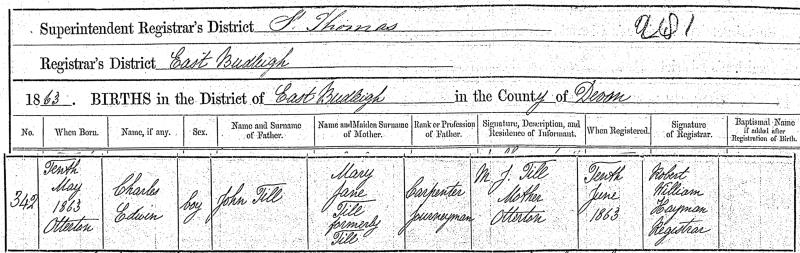 Superintendent Registrar's District St. Thomas
981
Registrar's District East Budleigh
1863. BIRTHS in the District of East Budleigh in the County of Devon
No. When Born. Name, if any. Sex. Name and Surname of Father. Name and Maiden Surname of Mother. Rank or Profession of Father. Signature, Description, and Residence of Informant. When Registered. Signature of Registrar. Baptismal Name if added after Registration of Birth.
342
Tenth
May
1863
Otterton
Charles
Edwin
boy
John Till
Mary
Jane
Till
formerly
Till
Carpenter
Journeyman
M. J. Till
Mother
Otterton
Tenth
June
1863
Robert
William
Hayman
Registrar